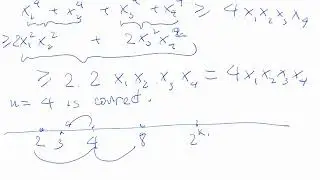 x₁⁴ + x₂⁴ + x₃⁴ + x₄⁴ ≥ 4x₁x₂x₃x₄
≥ 2x₁²x₂² + 2x₃²x₄²
≥ 2.2 x₁x₂.x₃x₄ = 4x₁x₂x₃x₄
n = 4 is correct.
2 3 4 8 2ᵏ